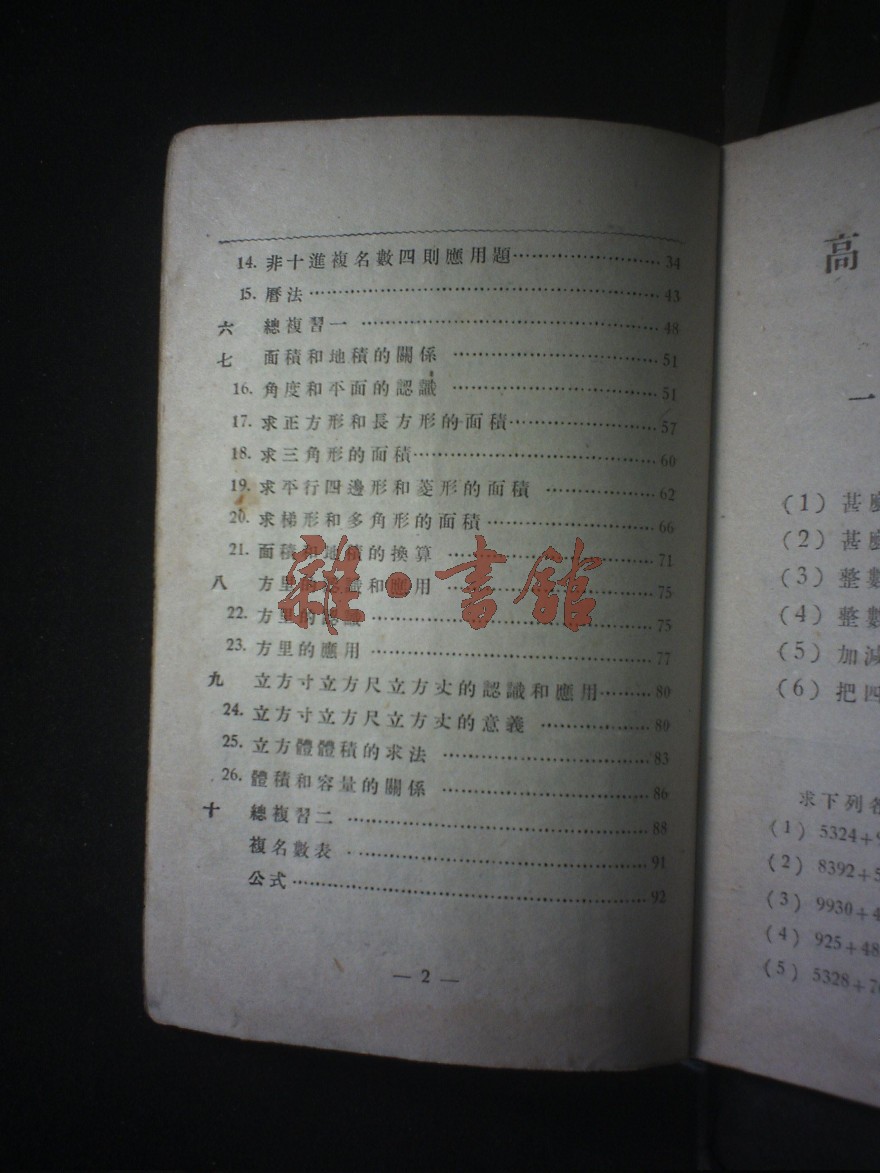 14. 非十進複名數四則應用題……………………34
15. 曆法……………………43
六 總複習一……………………48
七 面積和地積的關係……………………51
16. 角度和平面的認識……………………51
17. 求正方形和長方形的面積……………………57
18. 求三角形的面積……………………60
19. 求平行四邊形和菱形的面積……………………62
20. 求梯形和多角形的面積……………………66
21. 面積和地積的換算……………………71
八 方里的認識和應用……………………75
22. 方里的認識……………………75
23. 方里的應用……………………77
九 立方寸立方尺立方丈的認識和應用………80
24. 立方寸立方尺立方丈的意義……………………80
25. 立方體體積的求法……………………83
26. 體積和容量的關係……………………86
十 總複習二……………………88
複名數表……………………91
公式……………………92
— 2 —
雜·書館
高
一
(1) 甚
(2) 甚
(3) 整數
(4) 整數
(5) 加減
(6) 把四
求下列各
(1) 5324+
(2) 8392+5
(3) 9930+4
(4) 925+48
(5) 5328+70